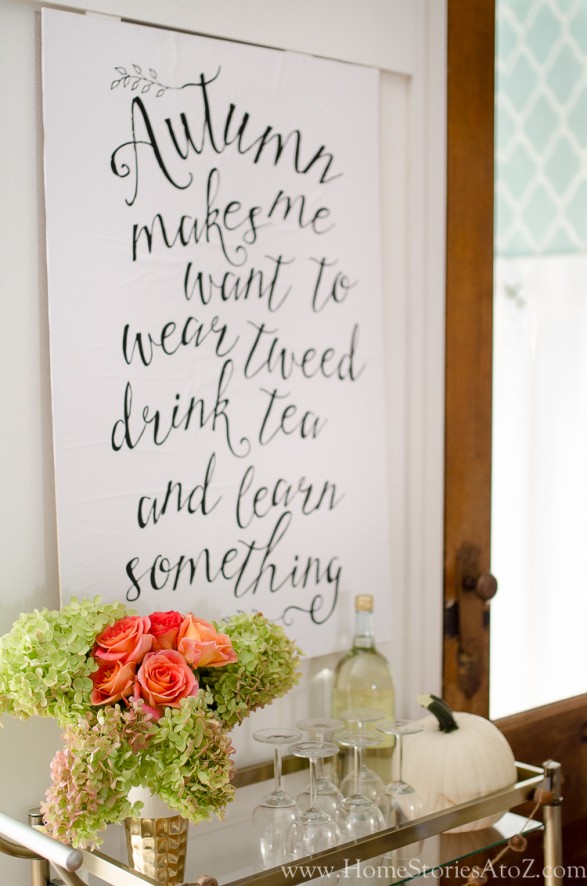 Autumn
makes me
want to
wear tweed
drink tea
and learn
something
www.HomeStoriesAtoZ.com